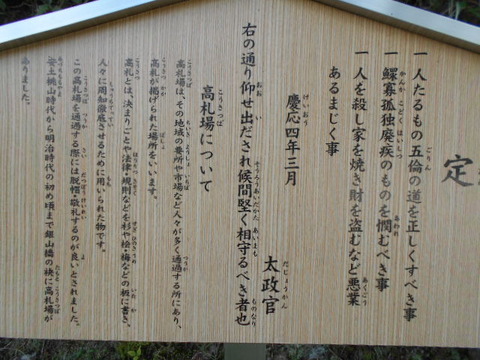 定
一人たるもの五倫の道を正しくすべき事
一鰥寡孤独癈疾のものを憫むべき事
一人を殺し家を焼き財を盗むなど悪業
あるまじく事
慶応四年三月
太政官
右の通り仰せ出だされ候間堅く相守るべき者也
高札場について
高札場は、その地域の要所や市場など人々が多く通過する所にあり、
高札が掲げられた場所をいいます。
高札とは、決まりごとや法律・規則などを杉や桧・梅などの板に書き、
人々に周知徹底させるために用いられた物です。
この高札場を通過する際には脱帽・敬礼するのが良いとされました。
安土桃山時代から明治時代の初め頃まで銀山橋の袂に高札場が
ありました。